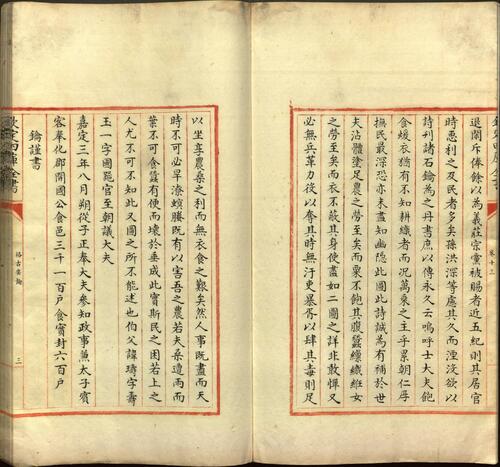 卷十三
退閒斥俸餘以為義莊宗黨被賜者近五紀則其居官
時惠利之及民者多矣孫洪深等慮其久而湮沒欲以
詩刊諸石鑰為之丹書庶以傳永久云嗚呼士大夫飽
食煖衣猶有不知耕織者而況萬乘之主乎累朝仁厚
撫民最深恐亦未盡知幽隱此圖此詩誠為有補於世
夫沾體塗足農之勞至矣而粟不飽其腹蠶繅織維女
之勞至矣而衣不蔽其身使盡如二圖之詳非敢憚又
必無兵革力役以奪其時無汙吏暴胥以肆其毒則足
以坐享農桑之利而無衣食之艱矣然人事既盡而天
時不可必旱潦螟螣既有以害吾之農若夫桑遭雨而
葉不可食蠶有便而壞於垂成此實斯民之困若上之
人尤不可不知此又圖之所不能述也伯父諱璹字壽
玉一字國器官至朝議大夫
嘉定三年八月朔從子正奉大夫參知政事兼太子賓
客奉化郡開國公食邑三千一百戶食實封六百戶
鑰謹書
欽定四庫全書
格古要論
三